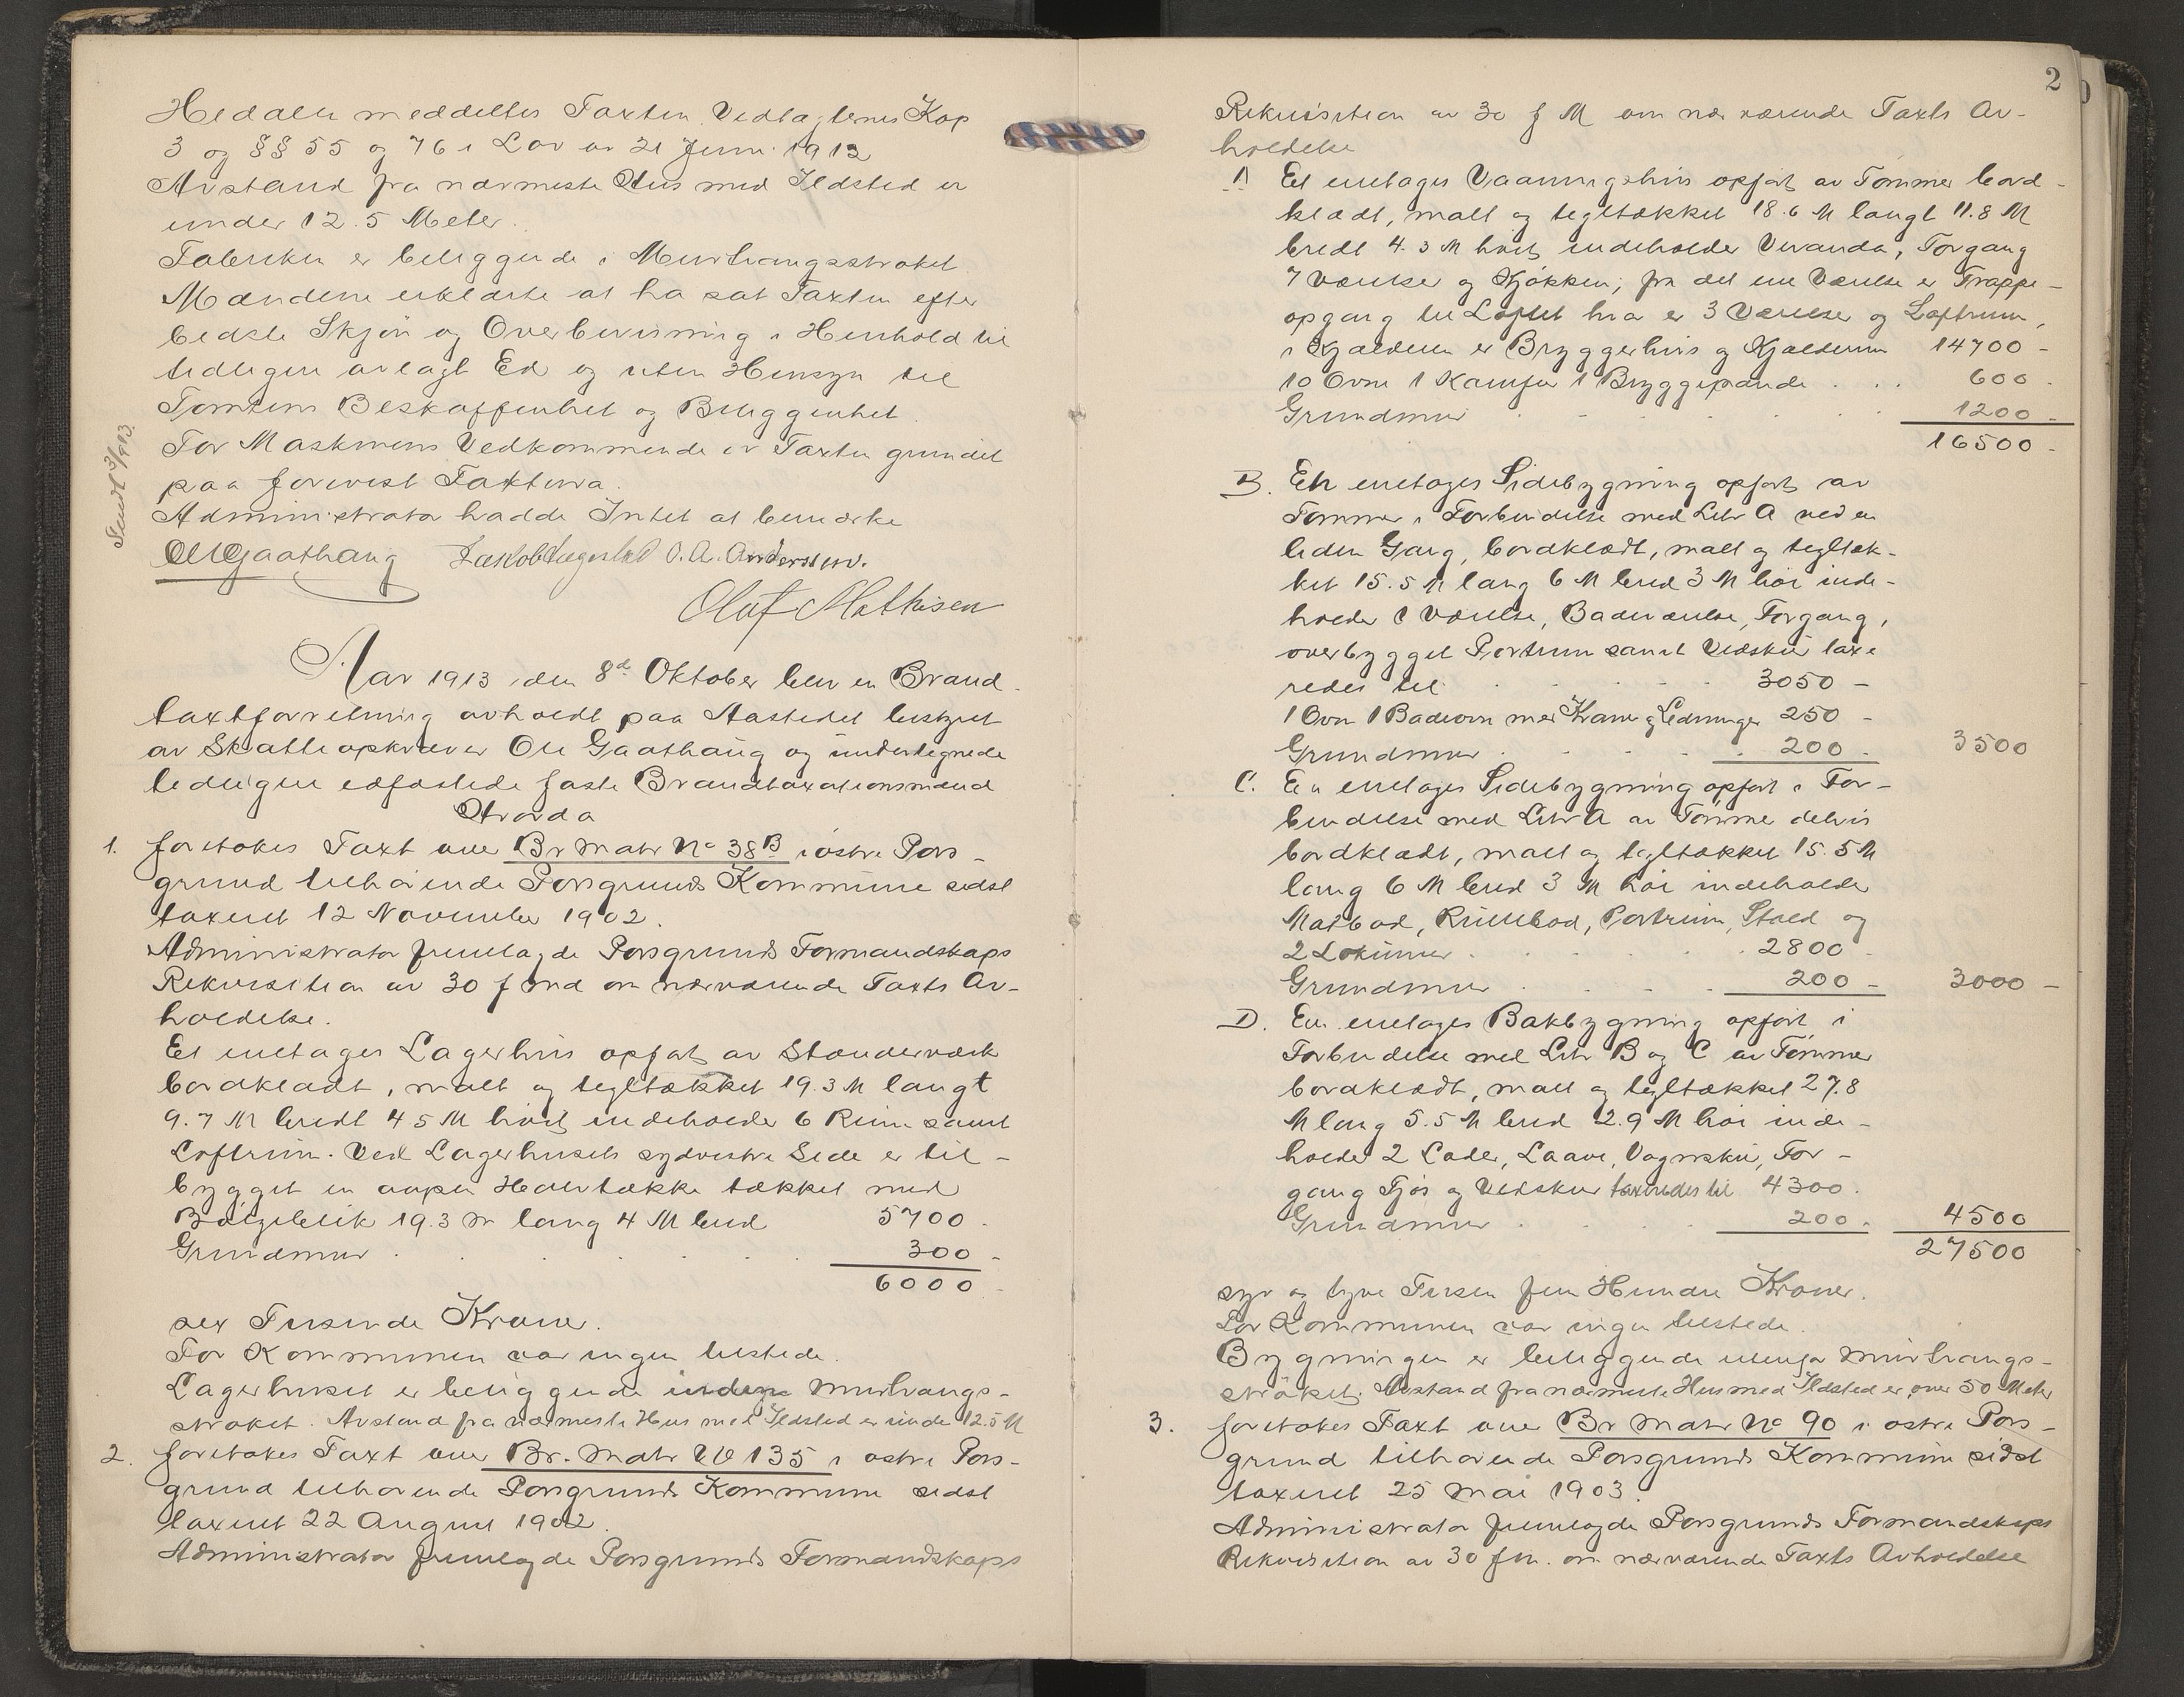 Hedalen meddeltes Taxten Vedtægternes Kap
3 og §§ 55 og 76 i Lov av 21 Juni 1912
Avstand fra nærmeste Hus med Ildsted er
under 12.5 Meter.
Fabriken er beliggende i Murtvangsstrøket
Mændene erklærte at ha sat Taxten efter
bedste Skjøn og Overbevisning i Henhold til
tidligere avlagt Ed og uten Hensyn til
Tomtens Beskaffenhet og Beliggenhet.
For Maskinens Vedkommende er Taxten grundet
paa forevist Faktura.
Administrator hadde Intet at bemærke
Sendt 3/1913
Ole Gaathaug Jakob O. A. Anderssen.
Olaf Mathisen
Aar 1913 den 8d Oktober blev en Brand
taxtforretning avholdt paa Aastedet bestyret
av Skatteopkræver Ole Gaathaug og undertegnede
tidligere edfæstede faste Brandtaxationsmænd
Storda
1. foretokes Taxt over Br Matr No 38B i østre Pors-
grund tilhørende Porsgrunds Kommune sidst
taxeret 12 November 1902.
Administrator fremlagde Porsgrunds Formandskaps
Rekvisition av 30 f Md om nærværende Taxts Av-
holdelse.
Et enetages Lagerhus opført av Stænderværk
bordklædt, malt og tegltækket 19.3 M langt
9.7 M bredt 4 5 M høit indeholder 6 Rum samt
Loftrum. Ved Lagerhusets sydvestre Side er til-
bygget en aapen Halvtække tækket med
Bølgeblik 19.3 m lang 4 M bred 5700.
Grundmur . . . . . 300 -
6000 -
sex Tusinde Kroner.
For Kommunen var ingen tilstede.
Lagerhuset er beliggende indenfor Murtvangs-
strøket. Avstand fra nærmeste Hus med Ildsted er under 12.5 M
2. foretokes Taxt over Br. Matr No 135 i østre Pors-
grund tilhørende Porsgrunds Kommune sidst
taxeret 22 August 1902.
Administrator fremlagde Porsgrunds Formandskaps
2
Rekvisition av 30 f M om nærværende Taxts Av-
holdelse
A Et enetages Vaaningshus opført av Tømmer bord-
klædt, malt og tegltækket 18.6 M langt 11.8 M
bredt 4.3 M høit, indeholder Veranda, Forgang
7 Værelser og Kjøkken; fra det ene Værelse er Trappe-
opgang til Loftet hvor er 3 Værelser og Loftrum,
i Kjælderen er Bryggerhus og Kjælderrum 14700 -
10 Ovne 1 Komfur 1 Bryggepande . . . 600.
Grundmur . . . . . 1200 -
16500 -
B. En enetages Sidebygning opført av
Tømmer i Forbindelse med Litr A ved en
liden Gang, bordklædt, malt og tegltæk-
ket 15.5 M lang 6 M bred 3 M høi inde-
holder 1 Værelse, Badeværelse, Forgang,
overbygget Portrum samt Vedskur taxe
redes til . . . . 3050 -
1 Ovn 1 Badeovn med Kraner og Ledninger 250 -
Grundmur . . . . . 200. 3500
C. En enetages Sidebygning opført i For-
bindelse med Litr A av Tømmer delvis
bordklædt, malt og tegltækket 15.5 M
lang 6 M bred 3 M høi indeholder
Matbod, Rullebod, Portrum, Stald og
2 Lokummer . . . . . 2800.
Grundmur . . . . 200 - 3000 -
D. En enetages Bakbygning opført i
Forbindelse med Litr B og C av Tømmer
bordklædt, malt og tegltækket 27.8
M lang 5.5 M bred 2.9 M høi inde-
holder 2 Lader, Laave, Vognskur, For-
gang Fjøs og Vedskur taxeredes til 4300.
Grundmur . . . . 200. 4500
27500
syv og tyve Tusen fem Hundre Kroner.
For Kommunen var ingen tilstede.
Bygningen er beliggende utenfor Murtvangs-
strøket. Avstand fra nærmeste Hus med Ildsted er over 50 Meter
3. foretokes Taxt over Br Matr No 90 i østre Pors-
grund tilhørende Porsgrunds Kommune sidst
taxeret 25 Mai 1903.
Administrator fremlagde Porsgrunds Formandskaps
Rekvisition av 30 f M. om nærværende Taxts Avholdelse